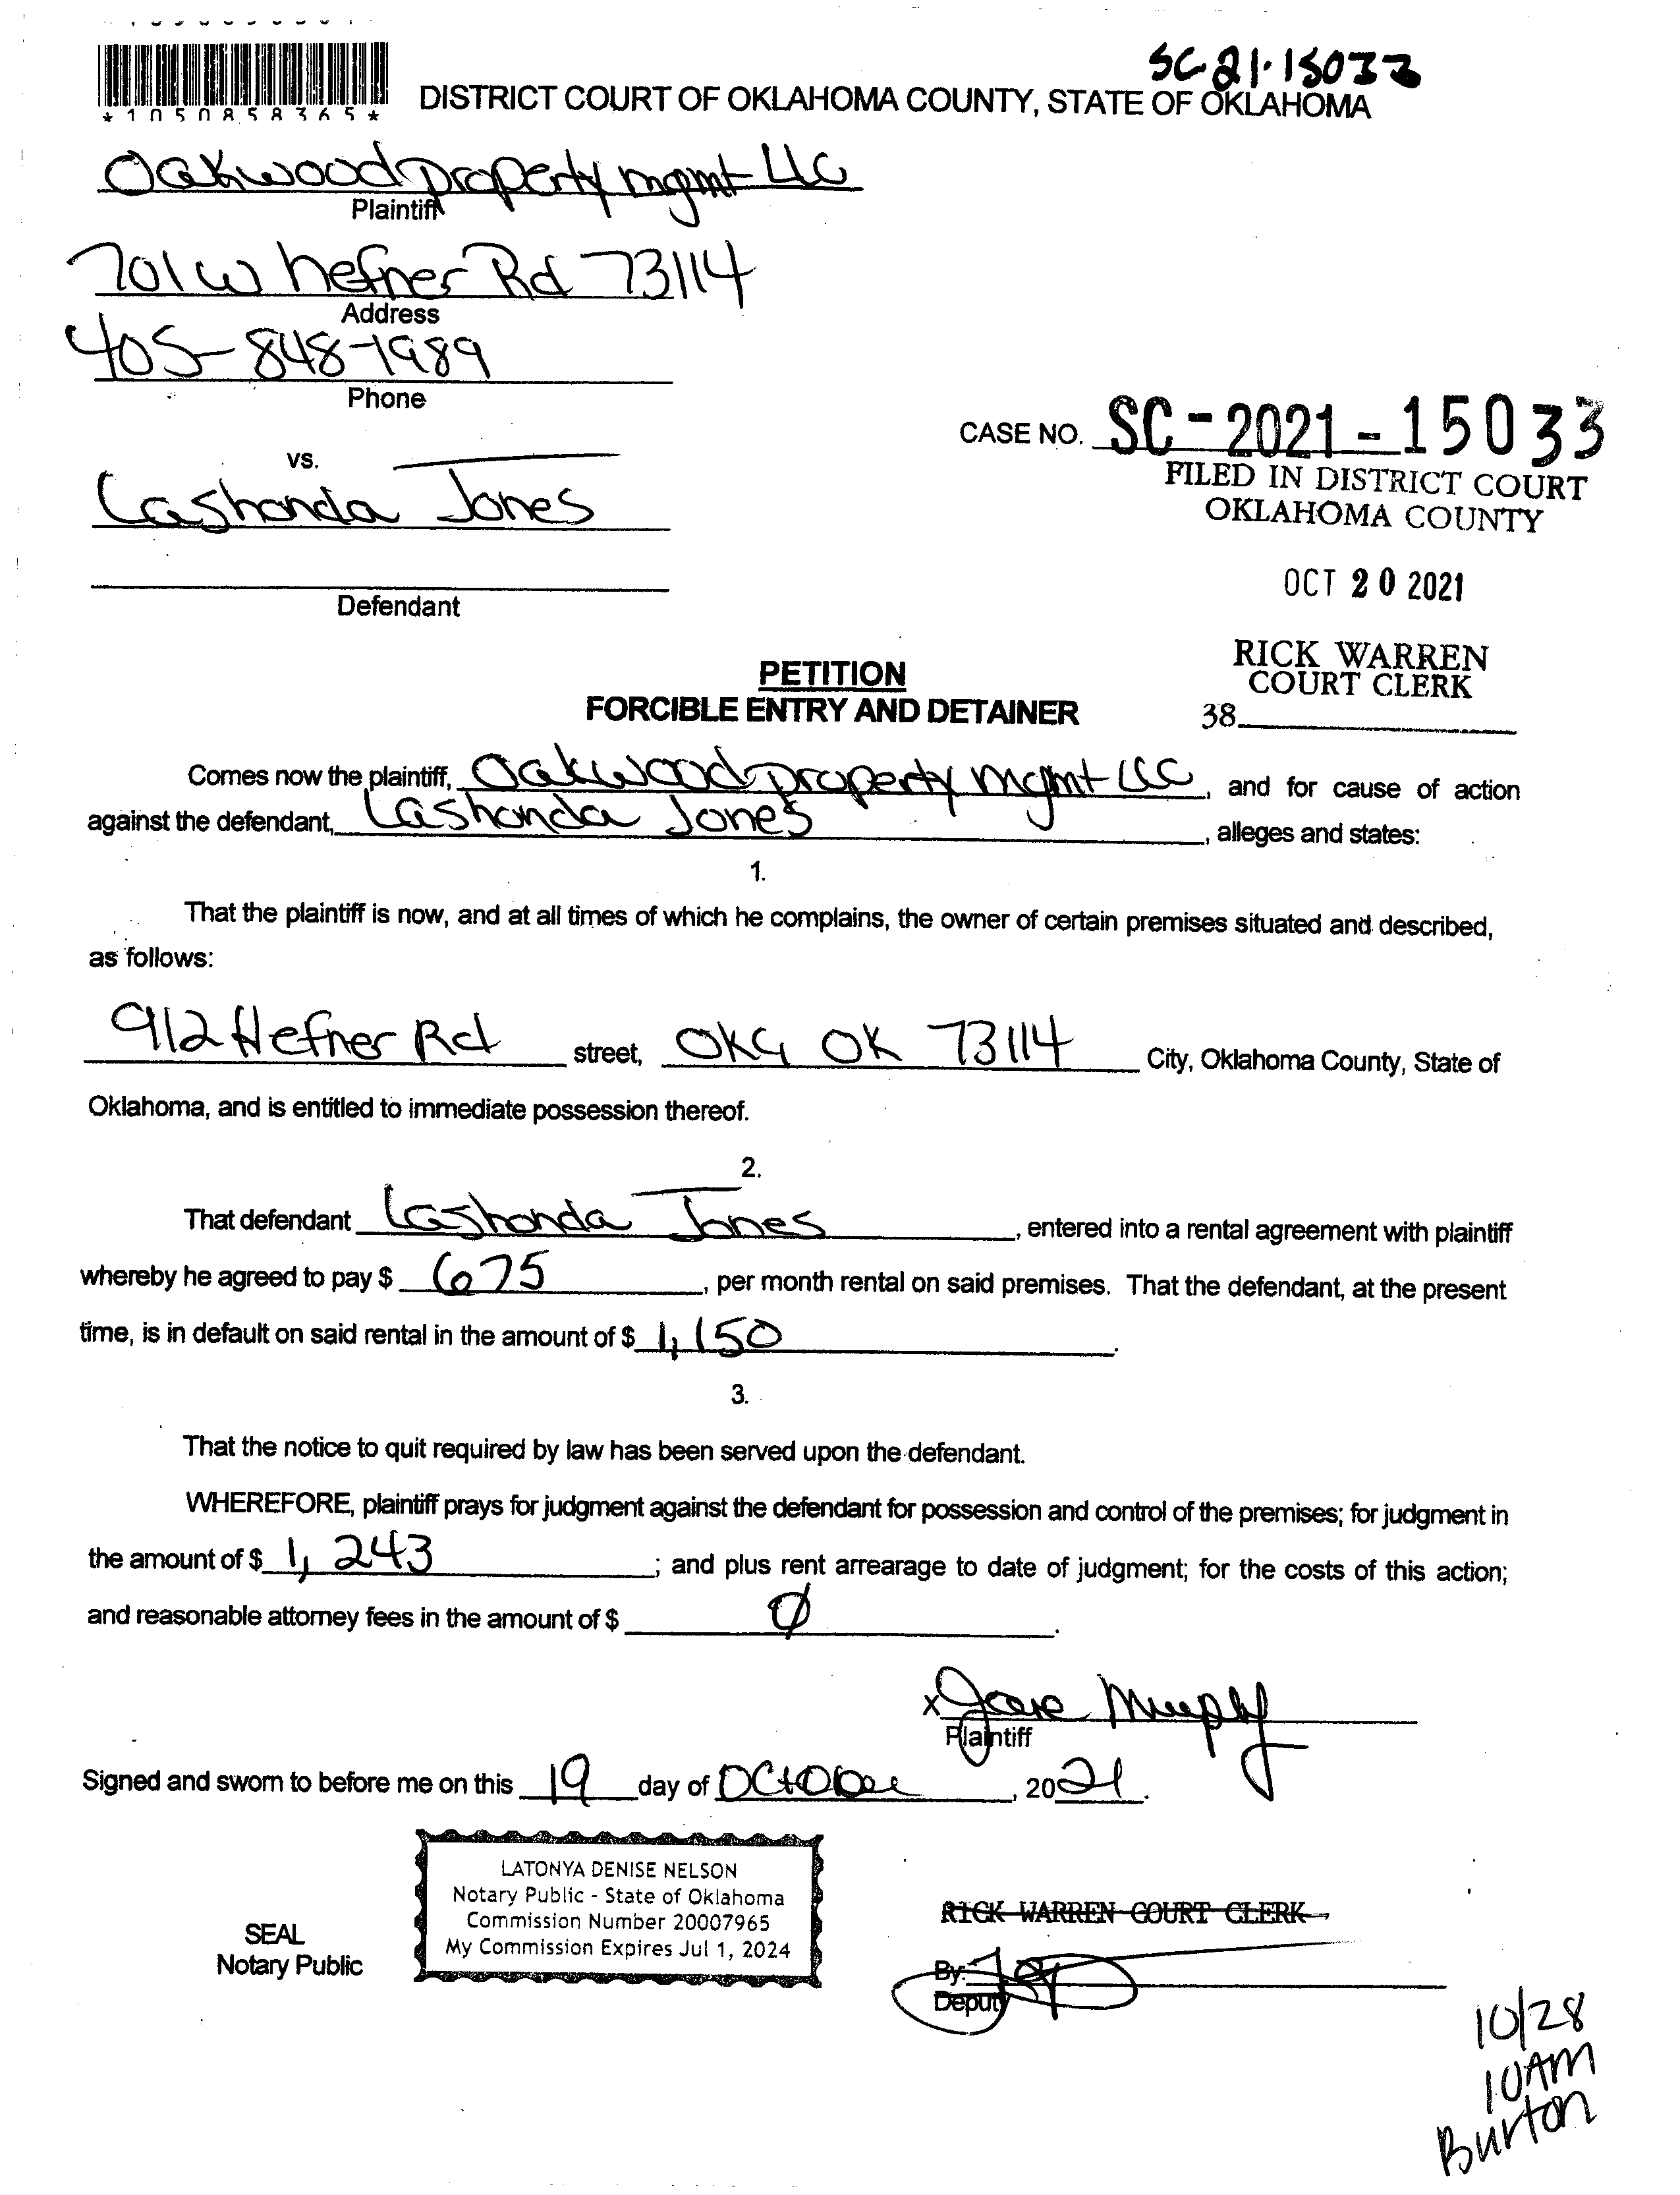 SC-21-15033
*1050858365*
DISTRICT COURT OF OKLAHOMA COUNTY, STATE OF OKLAHOMA
Oakwood property mgmt LLC
Plaintiff
701 W hefner Rd 73114
Address
405-848-1989
Phone
CASE NO. SC-2021-15033
vs.
FILED IN DISTRICT COURT
OKLAHOMA COUNTY
Lashonda Jones
OCT 20 2021
Defendant
RICK WARREN
COURT CLERK
38
PETITION
FORCIBLE ENTRY AND DETAINER
Comes now the plaintiff, Oakwood property mgmt LLC, and for cause of action
against the defendant, Lashonda Jones, alleges and states:
1.
That the plaintiff is now, and at all times of which he complains, the owner of certain premises situated and described,
as follows:
912 Hefner Rd street, OKC OK 73114 City, Oklahoma County, State of
Oklahoma, and is entitled to immediate possession thereof.
2.
That defendant Lashonda Jones, entered into a rental agreement with plaintiff
whereby he agreed to pay $ 675, per month rental on said premises. That the defendant, at the present
time, is in default on said rental in the amount of $ 1,150.
3.
That the notice to quit required by law has been served upon the defendant.
WHEREFORE, plaintiff prays for judgment against the defendant for possession and control of the premises; for judgment in
the amount of $ 1,243; and plus rent arrearage to date of judgment; for the costs of this action;
and reasonable attorney fees in the amount of $ Ø.
x Murphy
Plaintiff
Signed and sworn to before me on this 19 day of October, 2021.
LATONYA DENISE NELSON
Notary Public - State of Oklahoma
Commission Number 20007965
My Commission Expires Jul 1, 2024
SEAL
Notary Public
RICK WARREN COURT CLERK
By:
Deputy
10/28
10AM
Burton